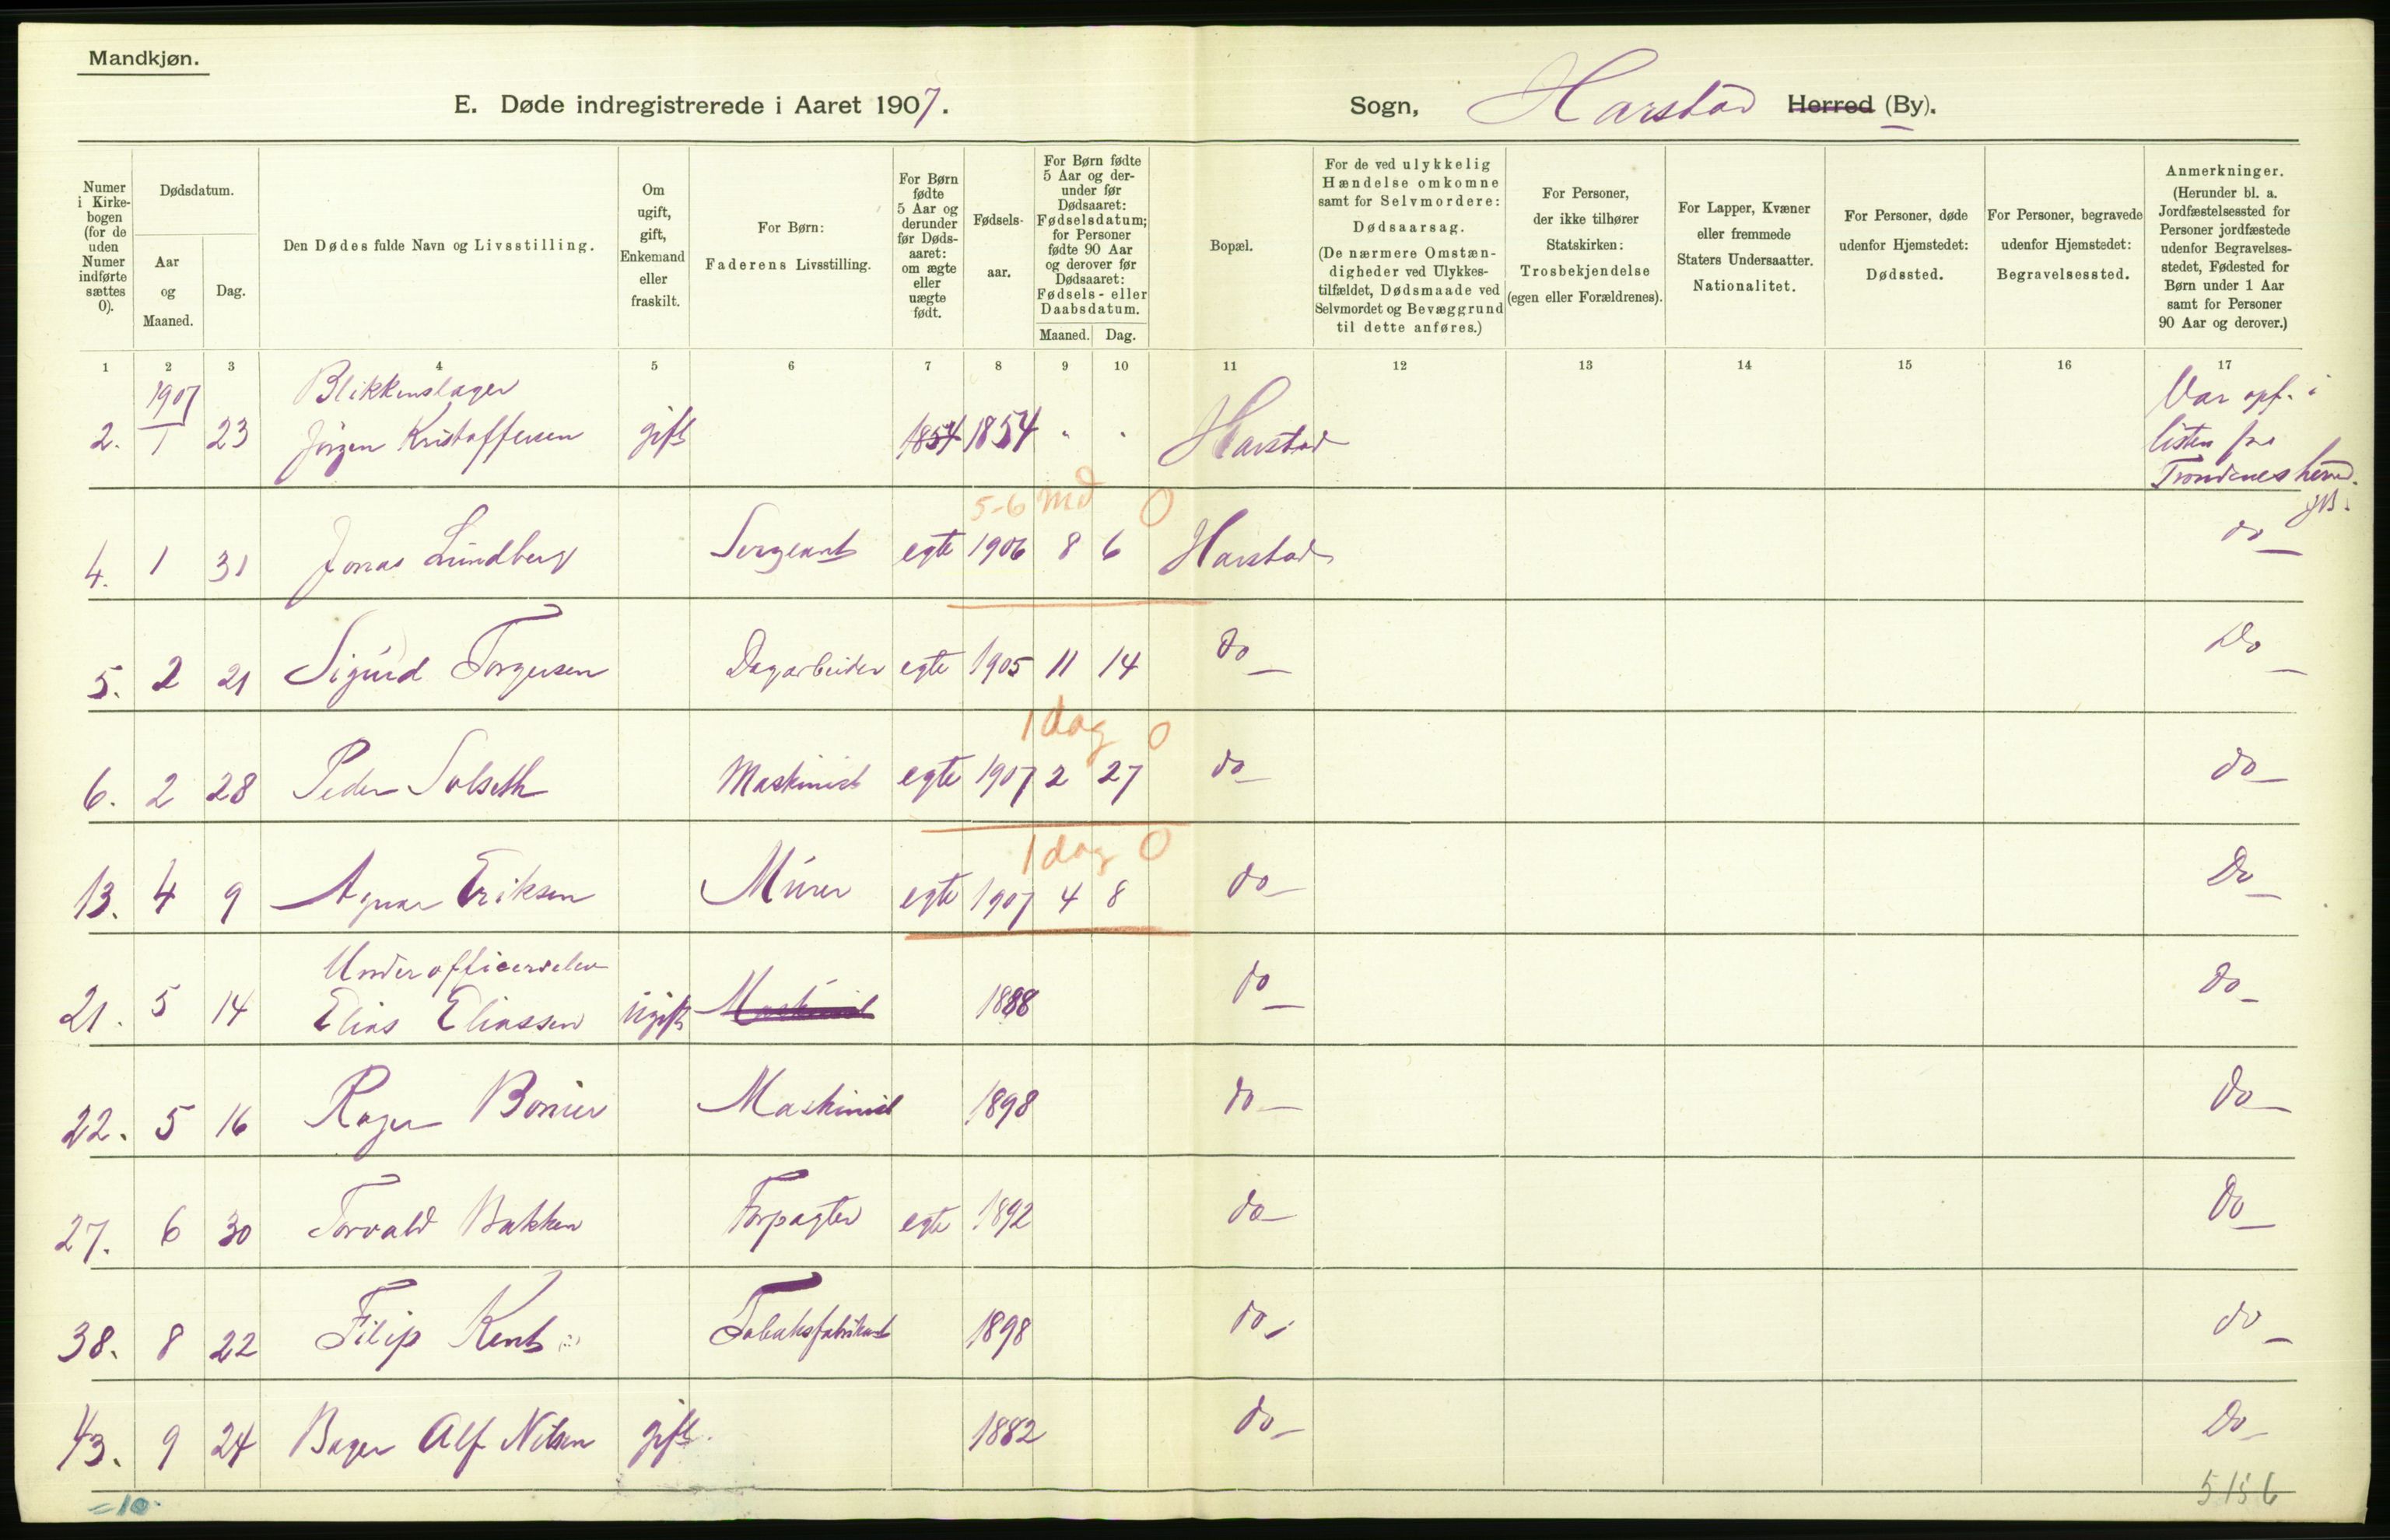 Mandkjøn.
E. Døde indregistrerede i Aaret 1907.
Sogn, Harstad Herred (By).
Numer i Kirkebogen (for de uden Numer indførte sættes 0).
Dødsdatum.
Aar og Maaned.
Dag.
Den Dødes fulde Navn og Livsstilling.
Om ugift, gift, Enkemand eller fraskilt.
For Børn: Faderens Livsstilling.
For Børn fødte 5 Aar og derunder før Dødsaaret: om ægte eller uægte født.
Fødselsaar.
For Børn fødte 5 Aar og derunder før Dødsaaret: Fødselsdatum; for Personer fødte 90 Aar og derover før Dødsaaret: Fødsels- eller Daabsdatum.
Maaned. Dag.
Bopæl.
For de ved ulykkelig Hændelse omkomne samt for Selvmordere: Dødsaarsag. (De nærmere Omstændigheder ved Ulykkestilfældet, Dødsmaade ved Selvmordet og Bevæggrund til dette anføres.)
For Personer, der ikke tilhører Statskirken: Trosbekjendelse (egen eller Forældrenes).
For Lapper, Kvæner eller fremmede Staters Undersaatter. Nationalitet.
For Personer, døde udenfor Hjemstedet: Dødssted.
For Personer, begravede udenfor Hjemstedet: Begravelsessted.
Anmerkninger. (Herunder bl. a. Jordfæstelsessted for Personer jordfæstede udenfor Begravelsesstedet, Fødested for Børn under 1 Aar samt for Personer 90 Aar og derover.)
1 2 3 4 5 6 7 8 9 10 11 12 13 14 15 16 17
1907 Blikkenslager Var opf. i
2. 1 23 Jørgen Kristoffersen gift 1854 1854 " " Harstad listen fra
Trondenes herred.
5-6 md 0
4. 1 31 Jonas Lundberg Sergeant egte 1906 8 6 Harstad do
5. 2 21 Sigurd Torgersen Dagarbeider egte 1905 11 14 do Do
1 dag 0
6. 2 28 Peder Solseth Maskinist egte 1907 2 27 do do
1 dag 0
13. 4 9 Agnar Eriksen Murer egte 1907 4 8 do Do
Underofficerselev
21. 5 14 Elias Eliassen ugift Maskinist 1888 do do
22. 5 16 Roger Maskinist 1898 do do
27. 6 30 Torvald Bakken Forpagter egte 1892 do Do
38. 8 22 Filip Kent Tobaksfabrikant 1898 do do
43. 9 24 Bager Alf Nilsen gift. 1882 do Do
=10. 5156